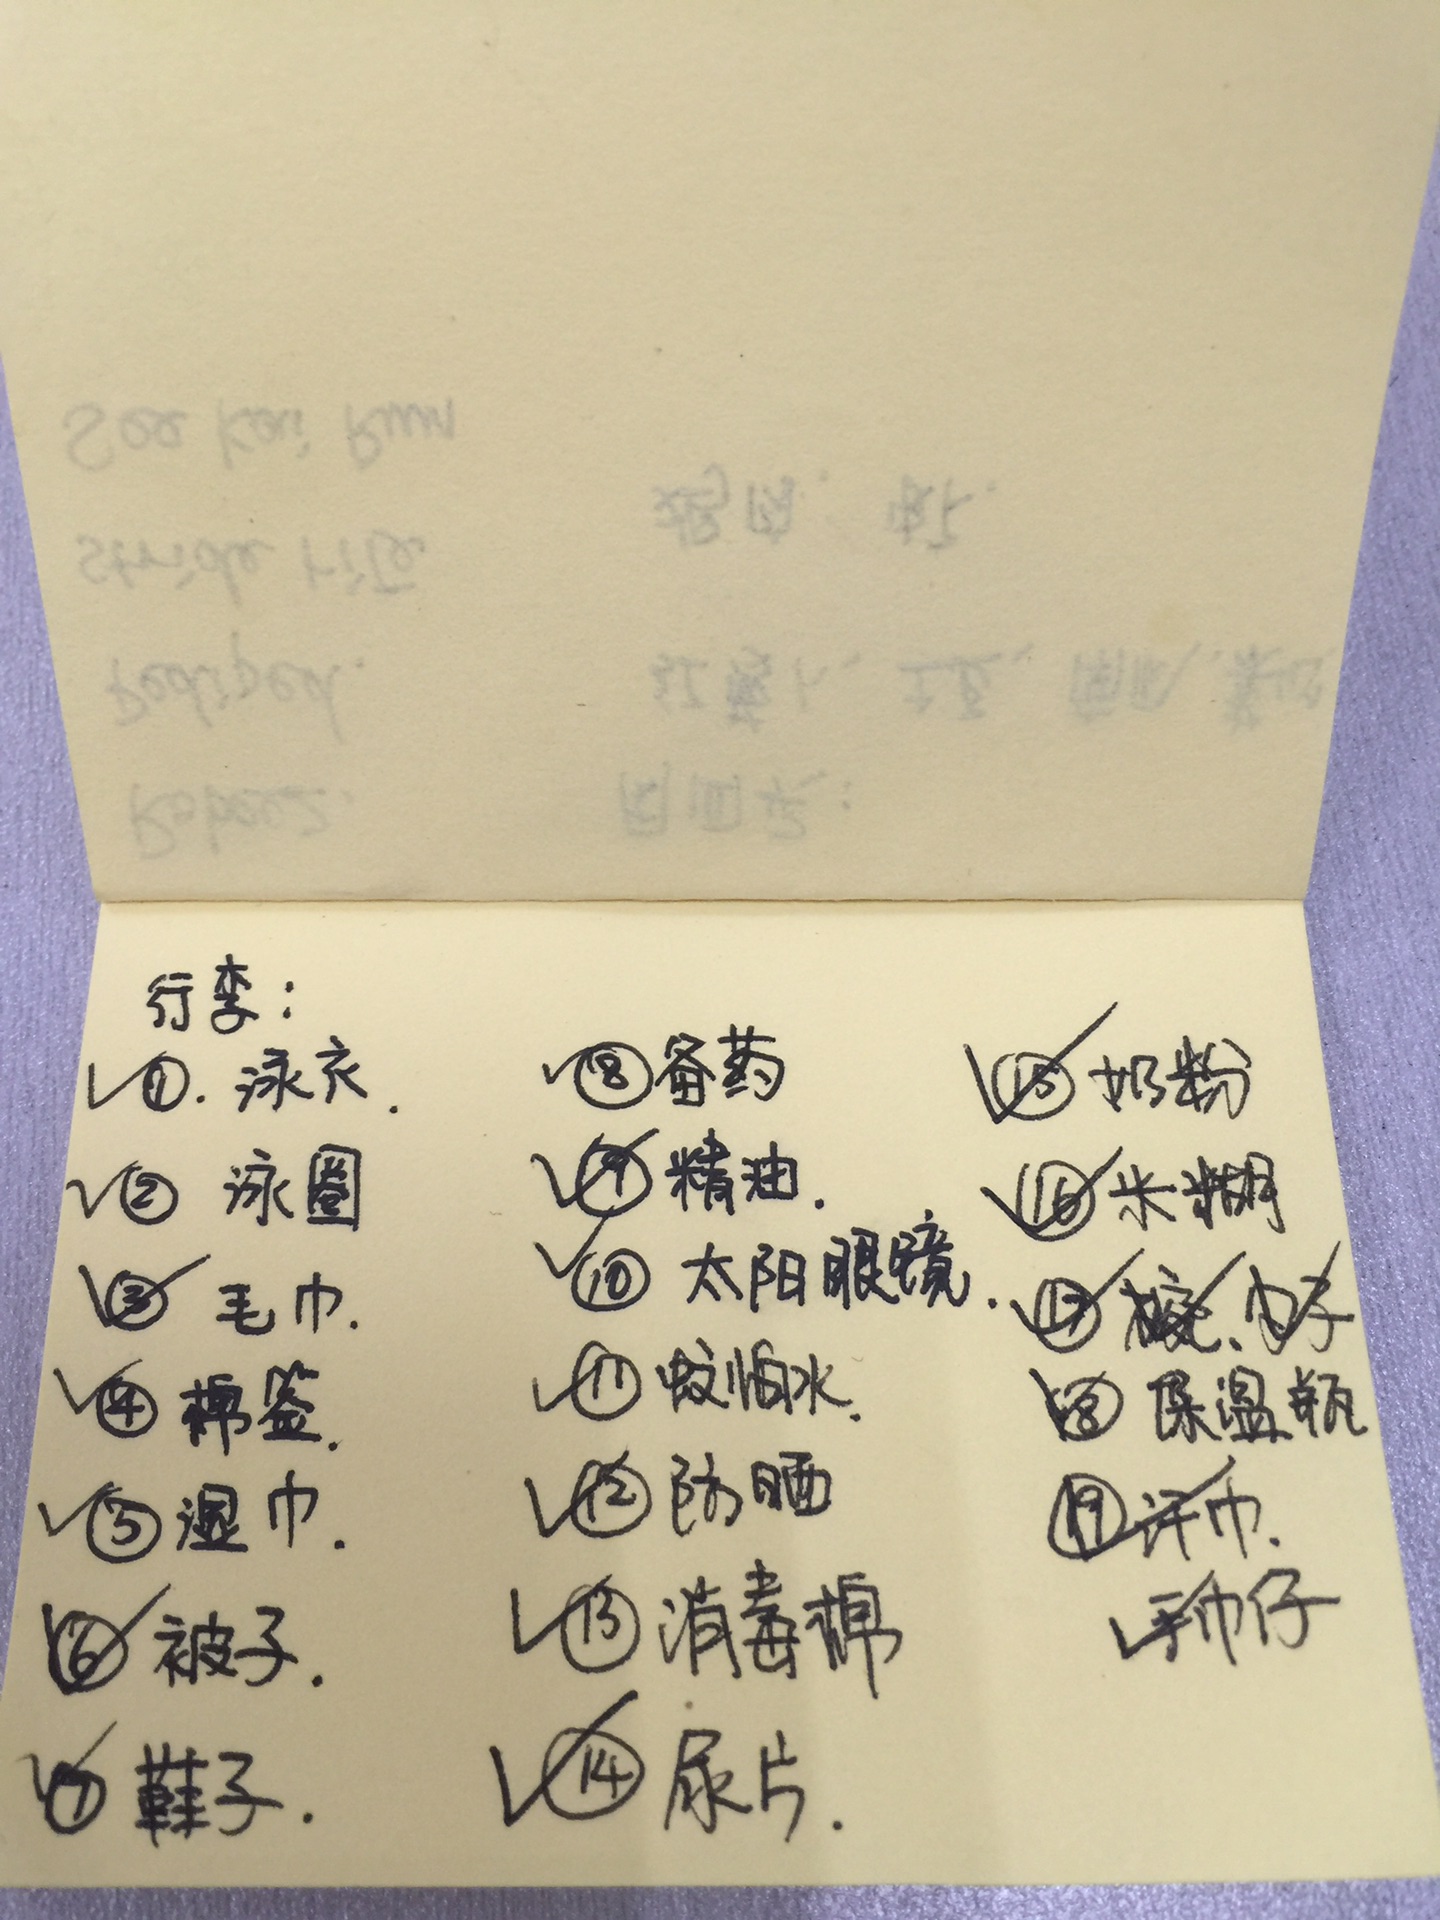 See Kai Run
stride rite
Pediped.
Robeez.
行李:
①. 泳衣.
② 泳圈
③ 毛巾.
④ 棉签.
⑤ 湿巾.
⑥ 被子.
⑦ 鞋子.
⑧ 备药
⑨ 精油.
⑩ 太阳眼镜.
⑪ 蚊怕水.
⑫ 防晒
⑬ 消毒棉
⑭ 尿片.
⑮ 奶粉
⑯ 米糊
⑱ 保温瓶
⑲ 汗巾.
手巾仔